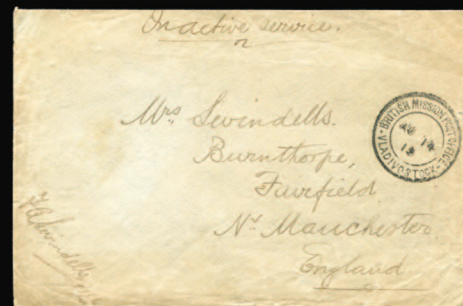 On active service.
Mrs Swindells.
Burnthorpe,
Fairfield
Nr Manchester
England
BRITISH MISSION POST OFFICE
VLADIVOSTOCK
AU 14
19
Swindells